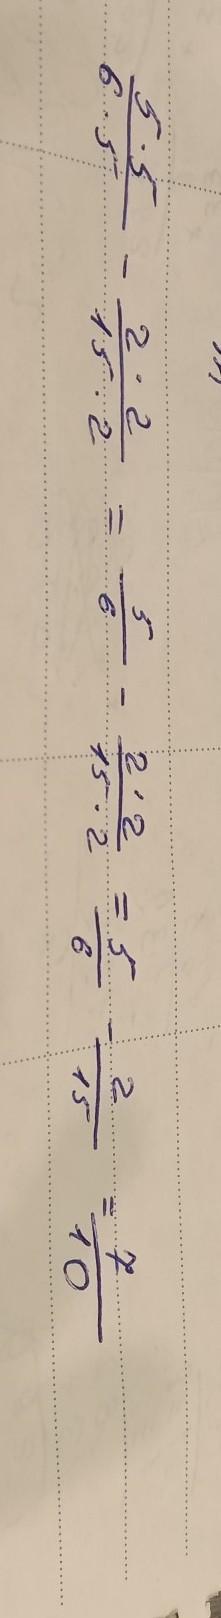 5·5/6·5 - 2·2/15·2 = 5/6 - 2·2/15·2 = 5/6 - 2/15 = 7/10